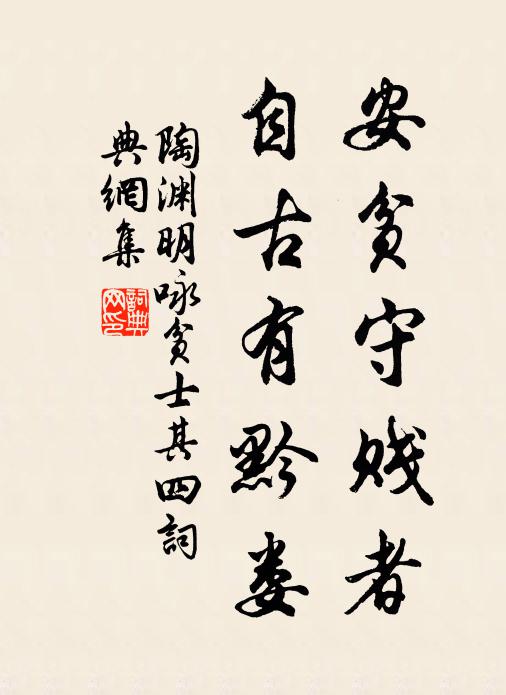 安贫守贱者
自古有黔娄
陶渊明咏贫士其四詞
典網集
詞典網印